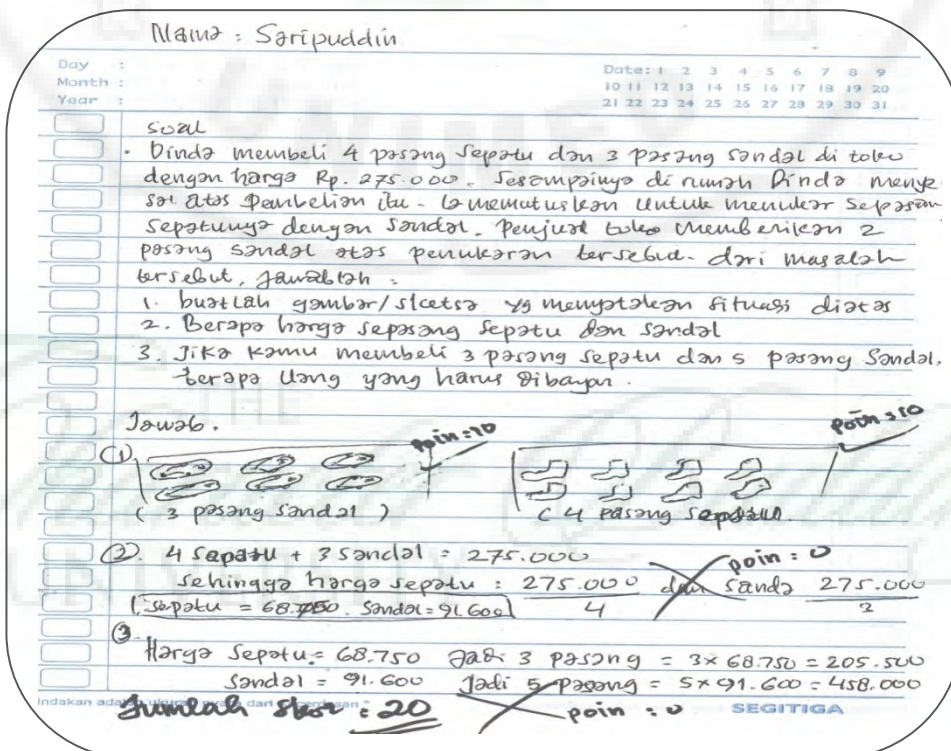 Nama : Saripuddin
Day :
Month :
Year :
Date: 1 2 3 4 5 6 7 8 9
10 11 12 13 14 15 16 17 18 19 20
21 22 23 24 25 26 27 28 29 30 31
soal
. Dinda membeli 4 pasang sepatu dan 3 pasang sandal di toko
dengan harga Rp. 275.000. Sesampainya di rumah Dinda menye
sal atas pembelian itu. Ia memutuskan untuk menukar sepasan
sepatunya dengan sandal. penjual toko memberikan 2
pasang sandal atas penukaran tersebut. dari masalah
tersebut, jawablah :
1. buatlah gambar/sketsa yg menyatakan situasi diatas
2. Berapa harga sepasang sepatu dan sandal
3. Jika kamu membeli 3 pasang sepatu dan 5 pasang sandal.
berapa uang yang harus dibayar.
Jawab.
poin = 10
poin = 10
①
( 3 pasang sandal )
( 4 pasang sepatu
②. 4 sepatu + 3 sandal = 275.000
poin : 0
sehingga harga sepatu : 275.000 / 4 dan sanda 275.000 / 3
(sepatu = 68.750. Sandal = 91.600)
③
Harga sepatu = 68.750 Jadi 3 pasang = 3 x 68.750 = 205.500
sandal = 91.600 Jadi 5 pasang = 5 x 91.600 = 458.000
Jumlah skor : 20
poin : 0
SEGITIGA